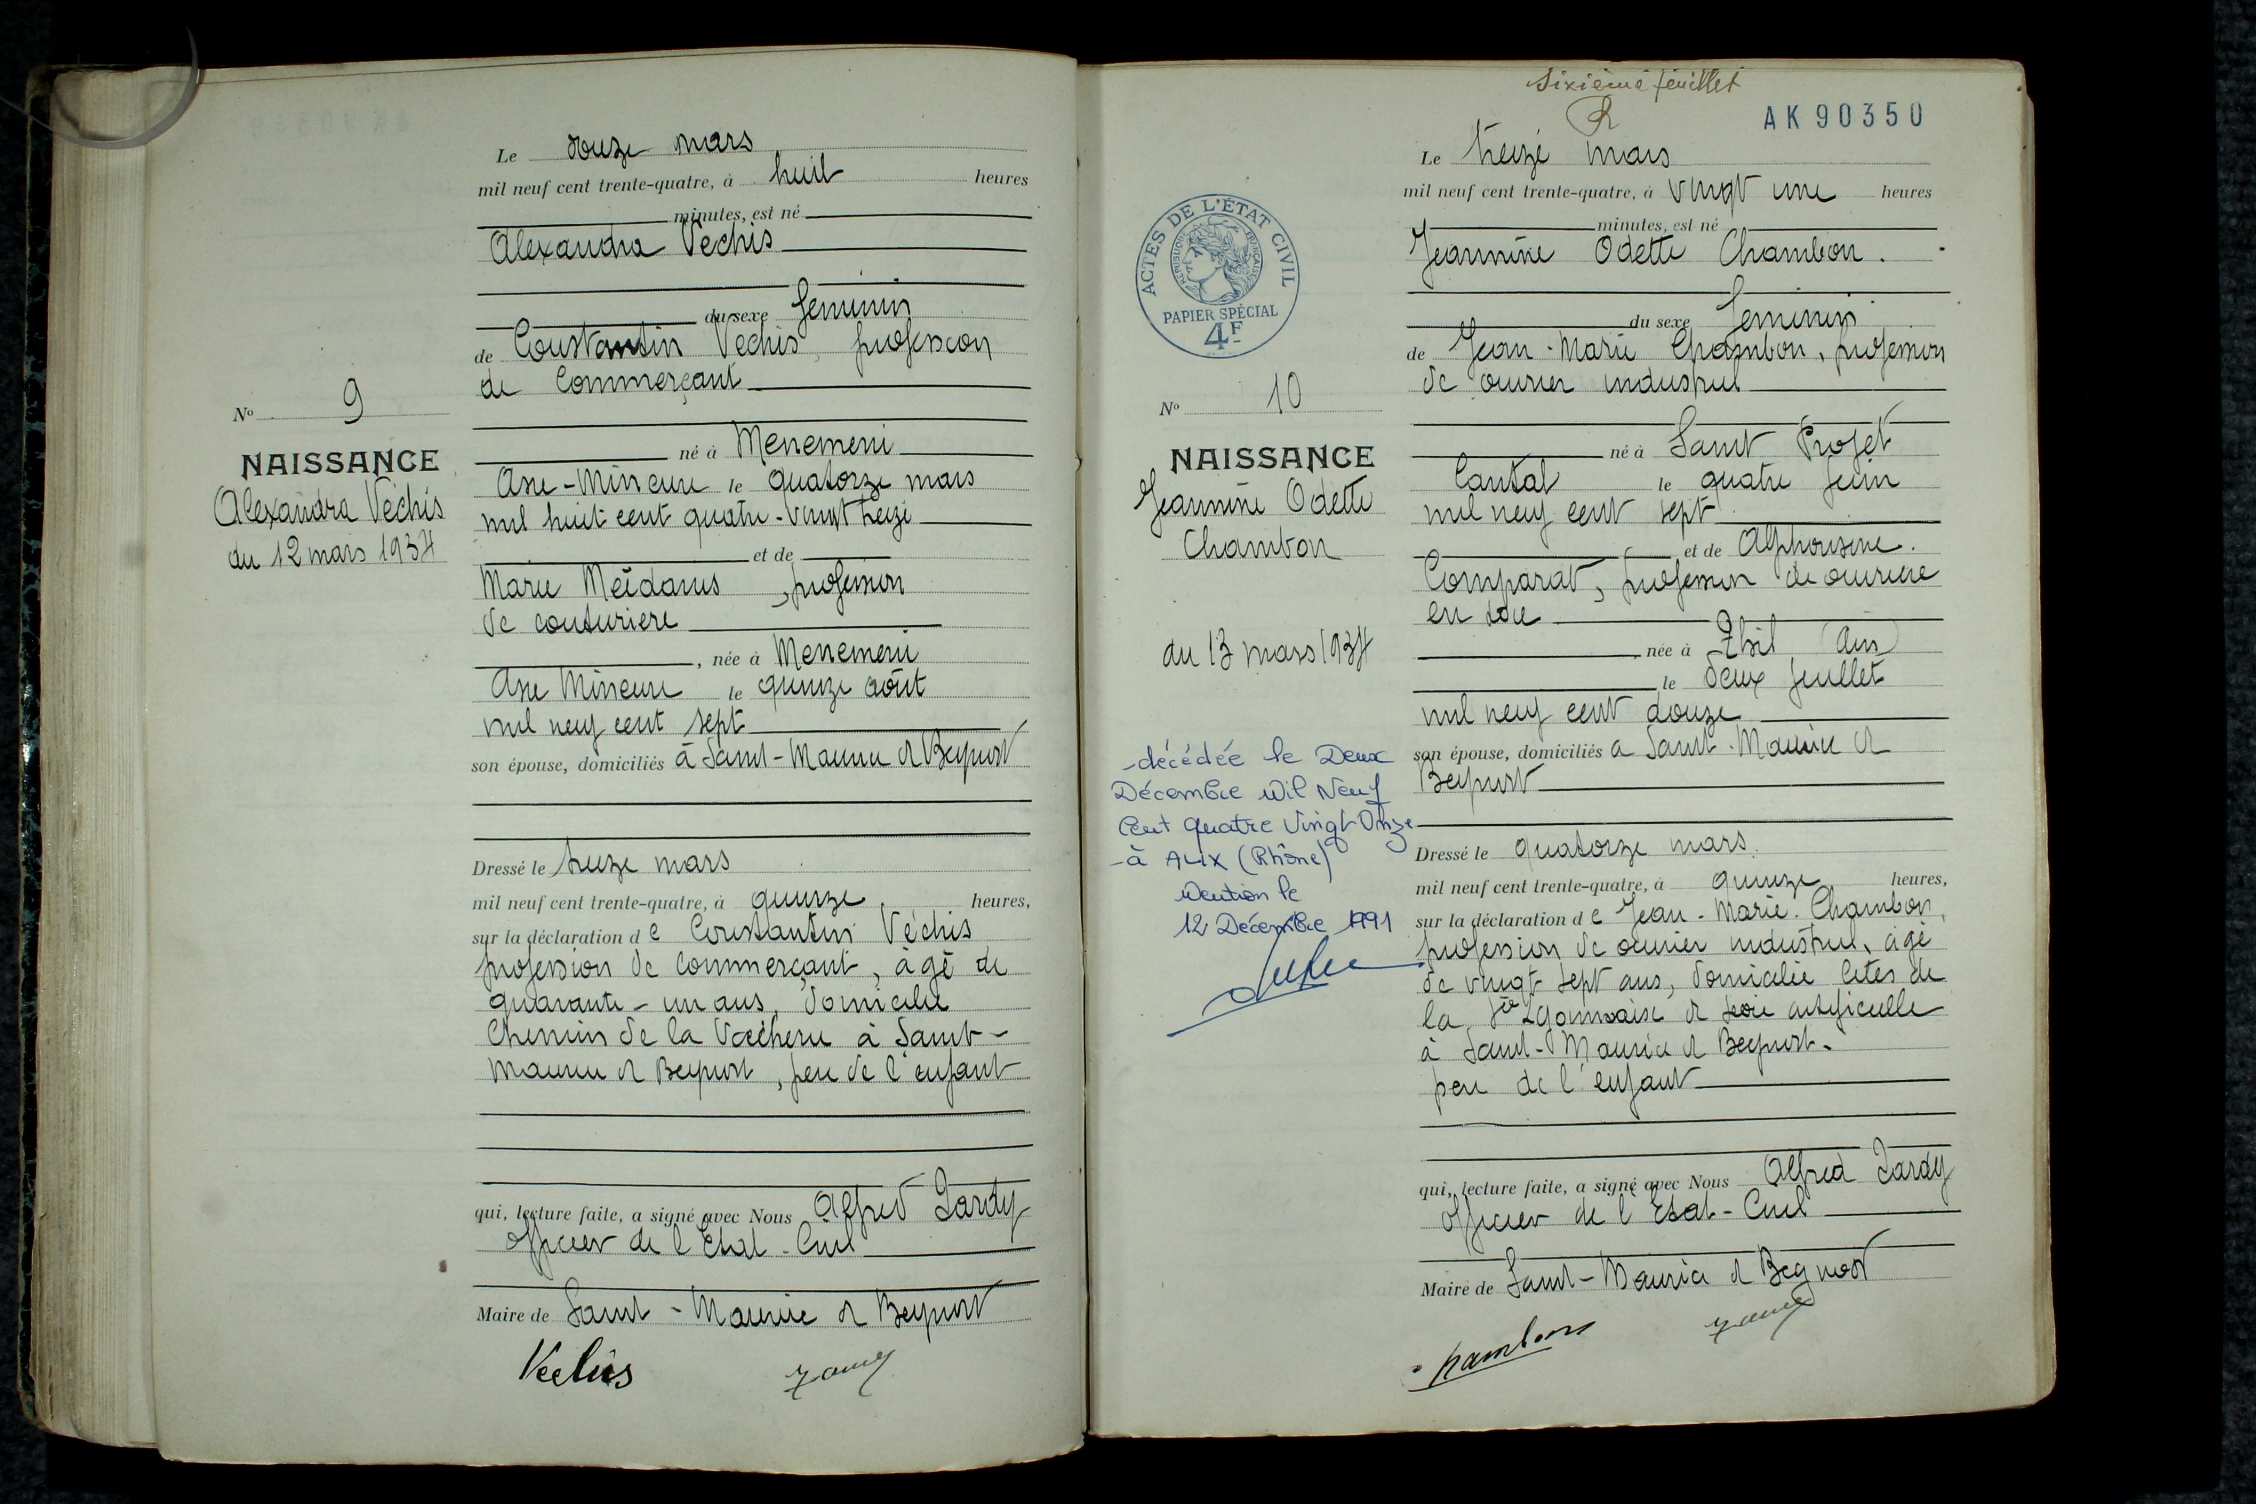 Le douze mars
mil neuf cent trente-quatre, à huit heures
minutes, est né
Alexandra Vechis
du sexe feminin
de Constantin Vechis, profession
de commerçant
né à Menemeni
Asie-Mineure le quatorze mars
mil huit cent quatre-vingt treize
et de
Marie Meïdanis, profession
de couturiere
, née à Menemeni
Asie Mineure le quinze août
mil neuf cent sept
son épouse, domiciliés à Saint-Maurice d Beynost
Dressé le treize mars
mil neuf cent trente-quatre, à quinze heures,
sur la déclaration de Constantin Véchis
profession de commerçant, âgé de
quarante-un ans, domicilié
chemin de la Vacherie à Saint-
Maurice d Beynost, pere de l'enfant
qui, lecture faite, a signé avec Nous Alfred Jardy
officier de l'Etat-Civil
Maire de Saint-Maurice d Beynost
Vechis
No 9
NAISSANCE
Alexandra Véchis
du 12 mars 1934
sixième feuillet
AK90350
Le treize mars
mil neuf cent trente-quatre, à vingt une heures
minutes, est né
Jeannine Odette Chambon.
du sexe feminin
de Jean-Marie Chambon, profession
de ouvrier industriel
né à Saint Projet
Cantal le quatre juin
mil neuf cent sept
et de Alphonsine.
Comparat, profession de ouvriere
en soie
née à Thil (Ain)
le deux juillet
mil neuf cent douze
son épouse, domiciliés a Saint-Maurice d
Beynost
Dressé le quatorze mars
mil neuf cent trente-quatre, à quinze heures,
sur la déclaration de Jean-Marie Chambon,
profession de ouvrier industriel, âgé
de vingt sept ans, domicilié cités de
la Sté Lyonnaise d soie artificielle
à Saint-Maurice d Beynost.
pere de l'enfant
qui, lecture faite, a signé avec Nous Alfred Jardy
officier de l'Etat-Civil
Maire de Saint-Maurice d Beynost
Chambon
ACTES DE L'ÉTAT CIVIL
RÉPUBLIQUE FRANÇAISE
PAPIER SPÉCIAL
4F
No 10
NAISSANCE
Jeannine Odette
Chambon
du 13 mars 1934
-décédée le Deux
Décembre Mil Neuf
Cent Quatre Vingt Onze
-à ALIX (Rhône)
Mention le
12 Décembre 1991